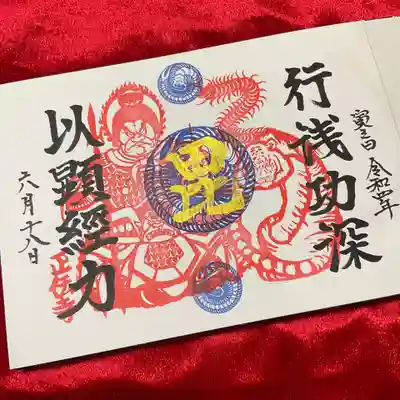 寅之日 令和四年
行浅功深
毘
以顯經力
六月十八日